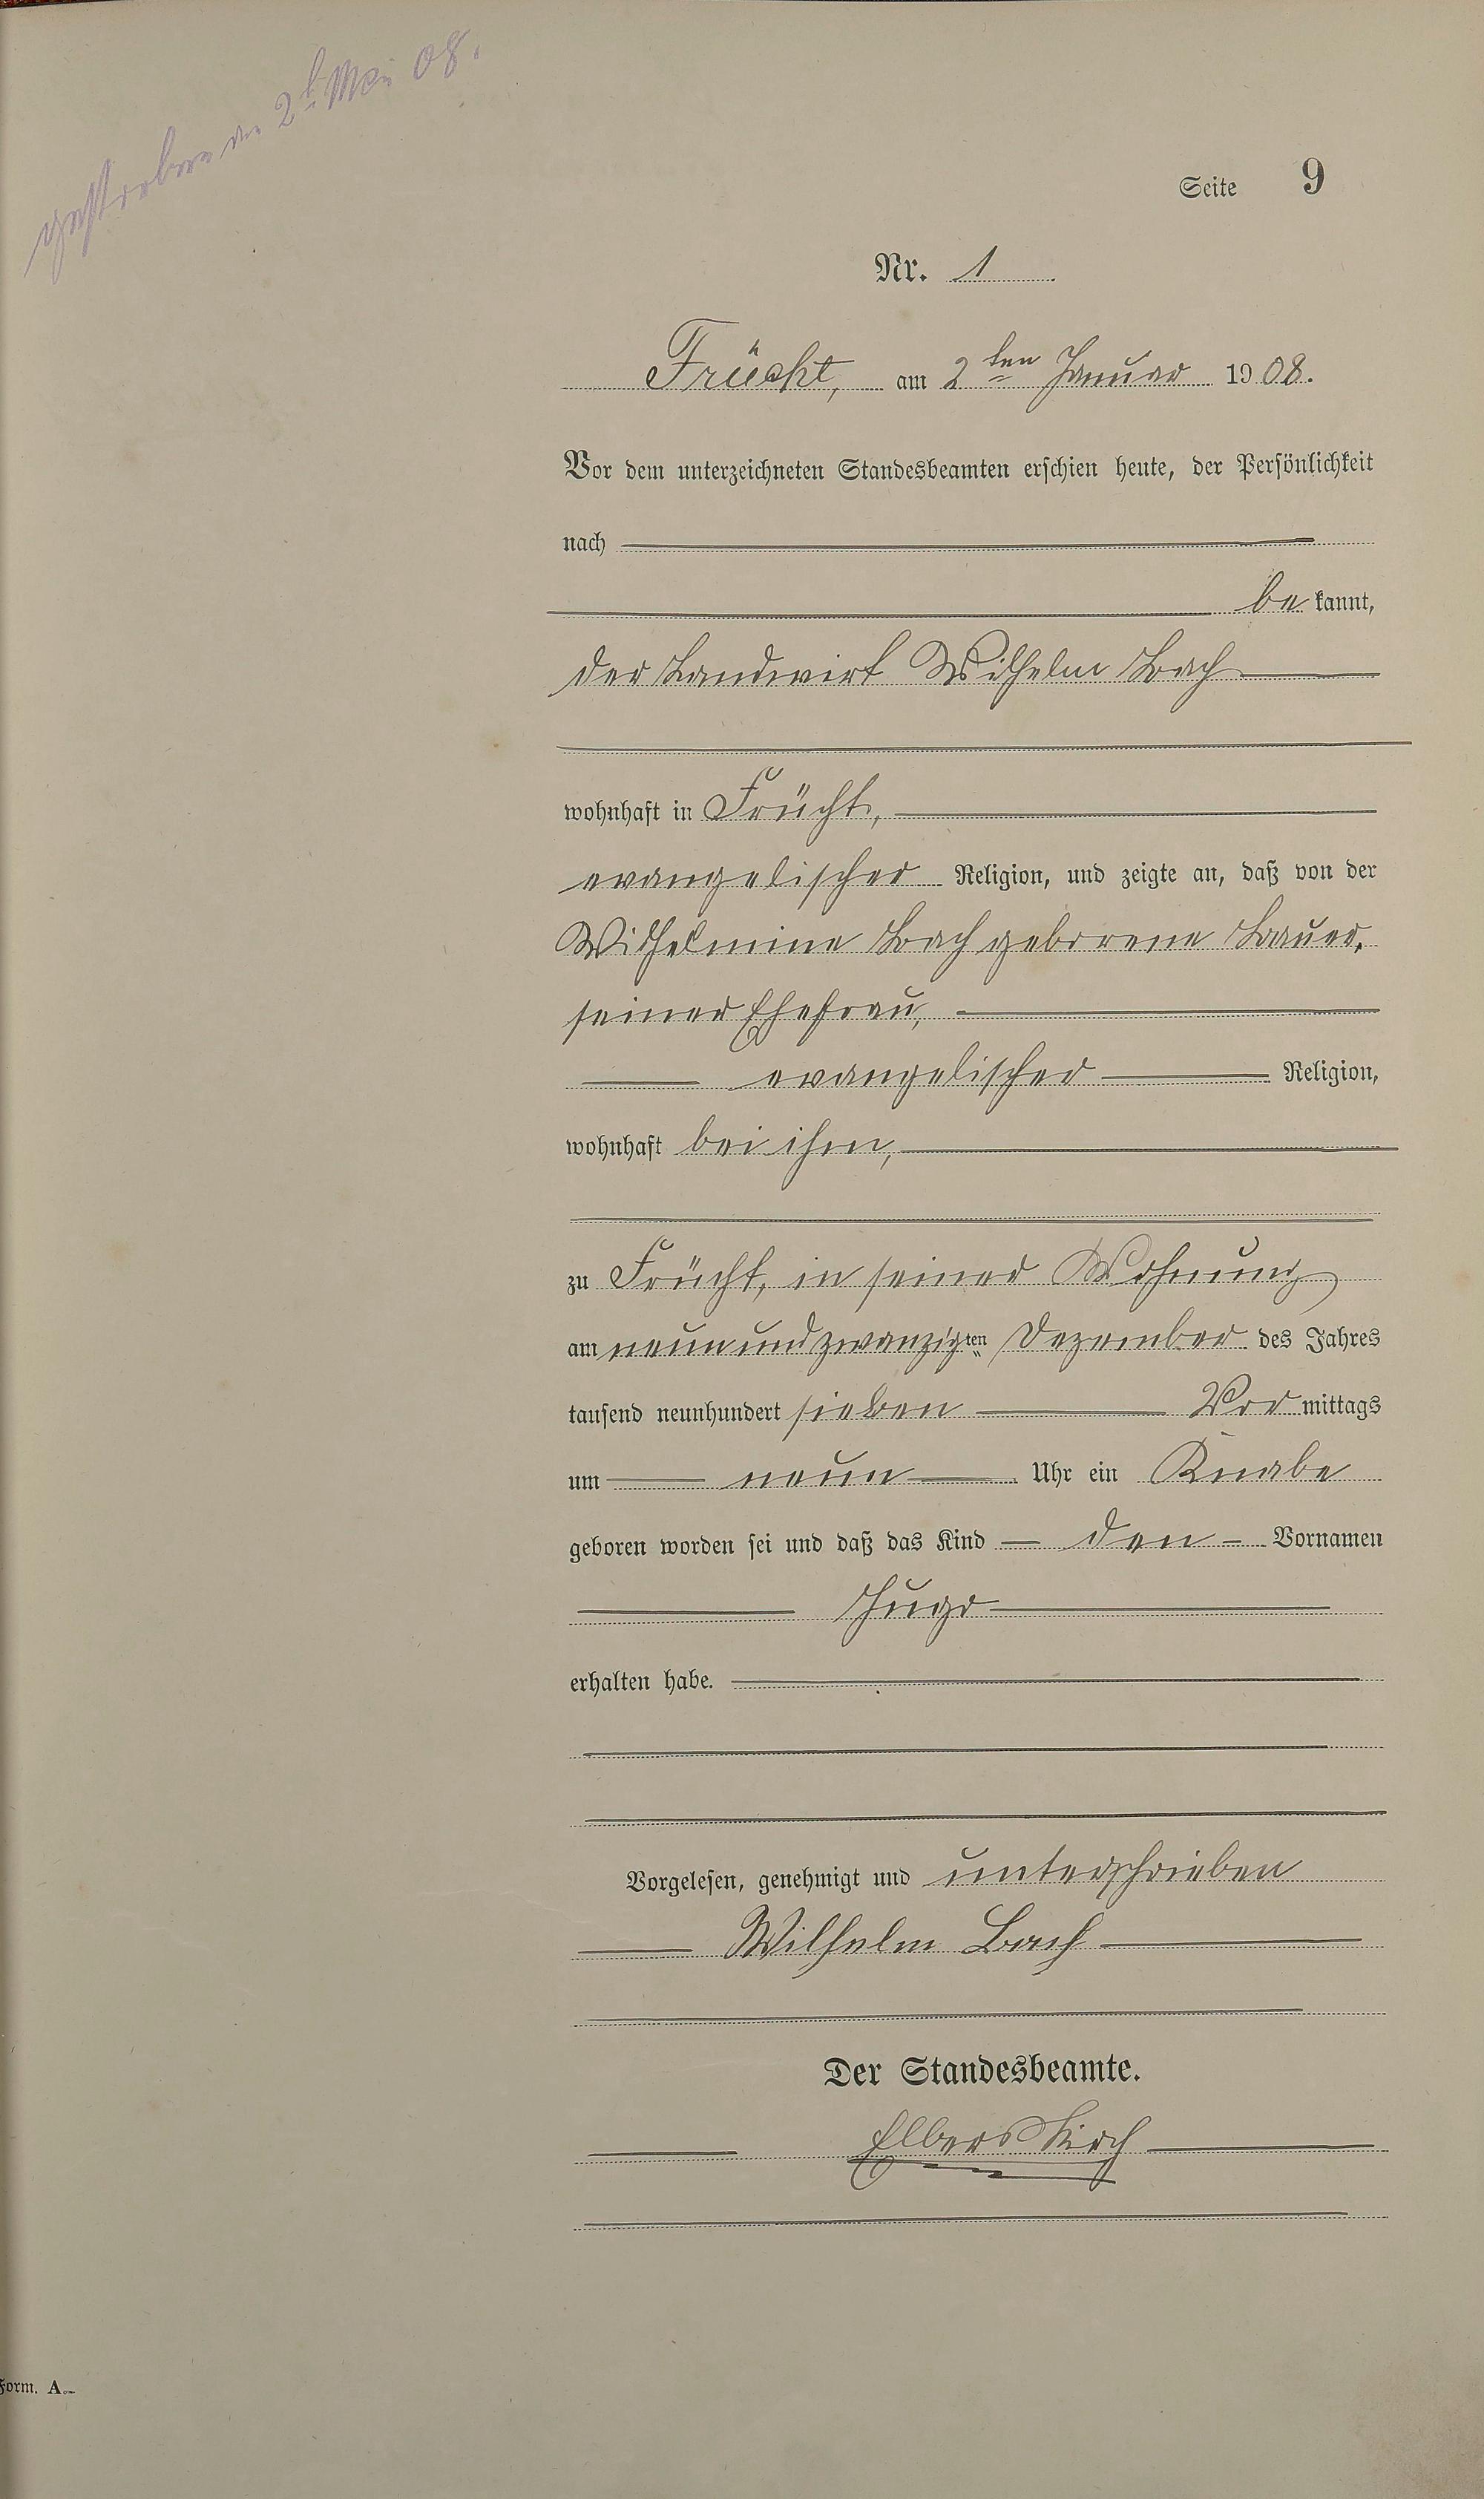 gestorben am 2t. Mai 08.
Seite 9
Nr. 1
Frücht, am 2ten Januar 1908.
Vor dem unterzeichneten Standesbeamten erschien heute, der Persönlichkeit
nach
be kannt,
der Landwirt Wilhelm Bach
wohnhaft in Frücht,
evangelischer Religion, und zeigte an, daß von der
Wilhelmine Bach geborene Bauer,
seiner Ehefrau,
evangelischer Religion,
wohnhaft bei ihm,
zu Frücht, in seiner Wohnung
am neunundzwanzigten Dezember des Jahres
tausend neunhundert sieben Vor mittags
um neun Uhr ein Knabe
geboren worden sei und daß das Kind den Vornamen
Hugo
erhalten habe.
Vorgelesen, genehmigt und unterschrieben
Wilhelm Bach
Der Standesbeamte.
Elberskirch
Form. A.